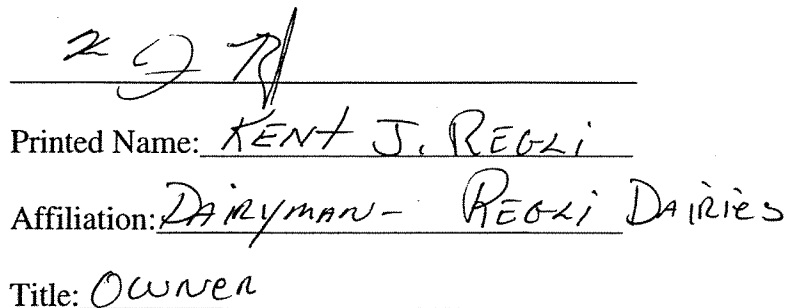 Printed Name: KENT J. REGLI
Affiliation: DAIRYMAN - REGLI DAIRIES
Title: OWNER